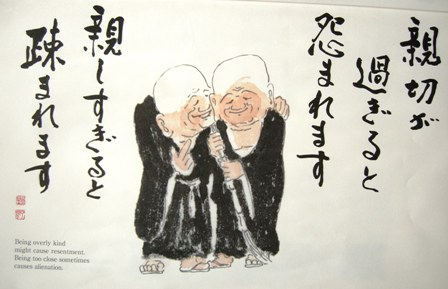 親切が
過ぎると
怨まれます
親しすぎると
疎まれます
Being overly kind
might cause resentment.
Being too close sometimes
causes alienation.